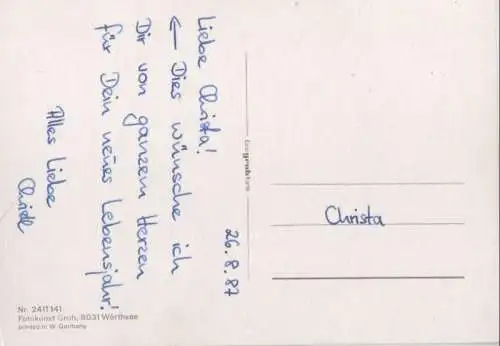 26.8.87
Liebe Christa!
← Dies wünsche ich
Dir von ganzem Herzen
für Dein neues Lebensjahr!
Alles Liebe
Christl
Christa
Nr. 2411141
Fotokunst Groh, 8031 Wörthsee
printed in W. Germany